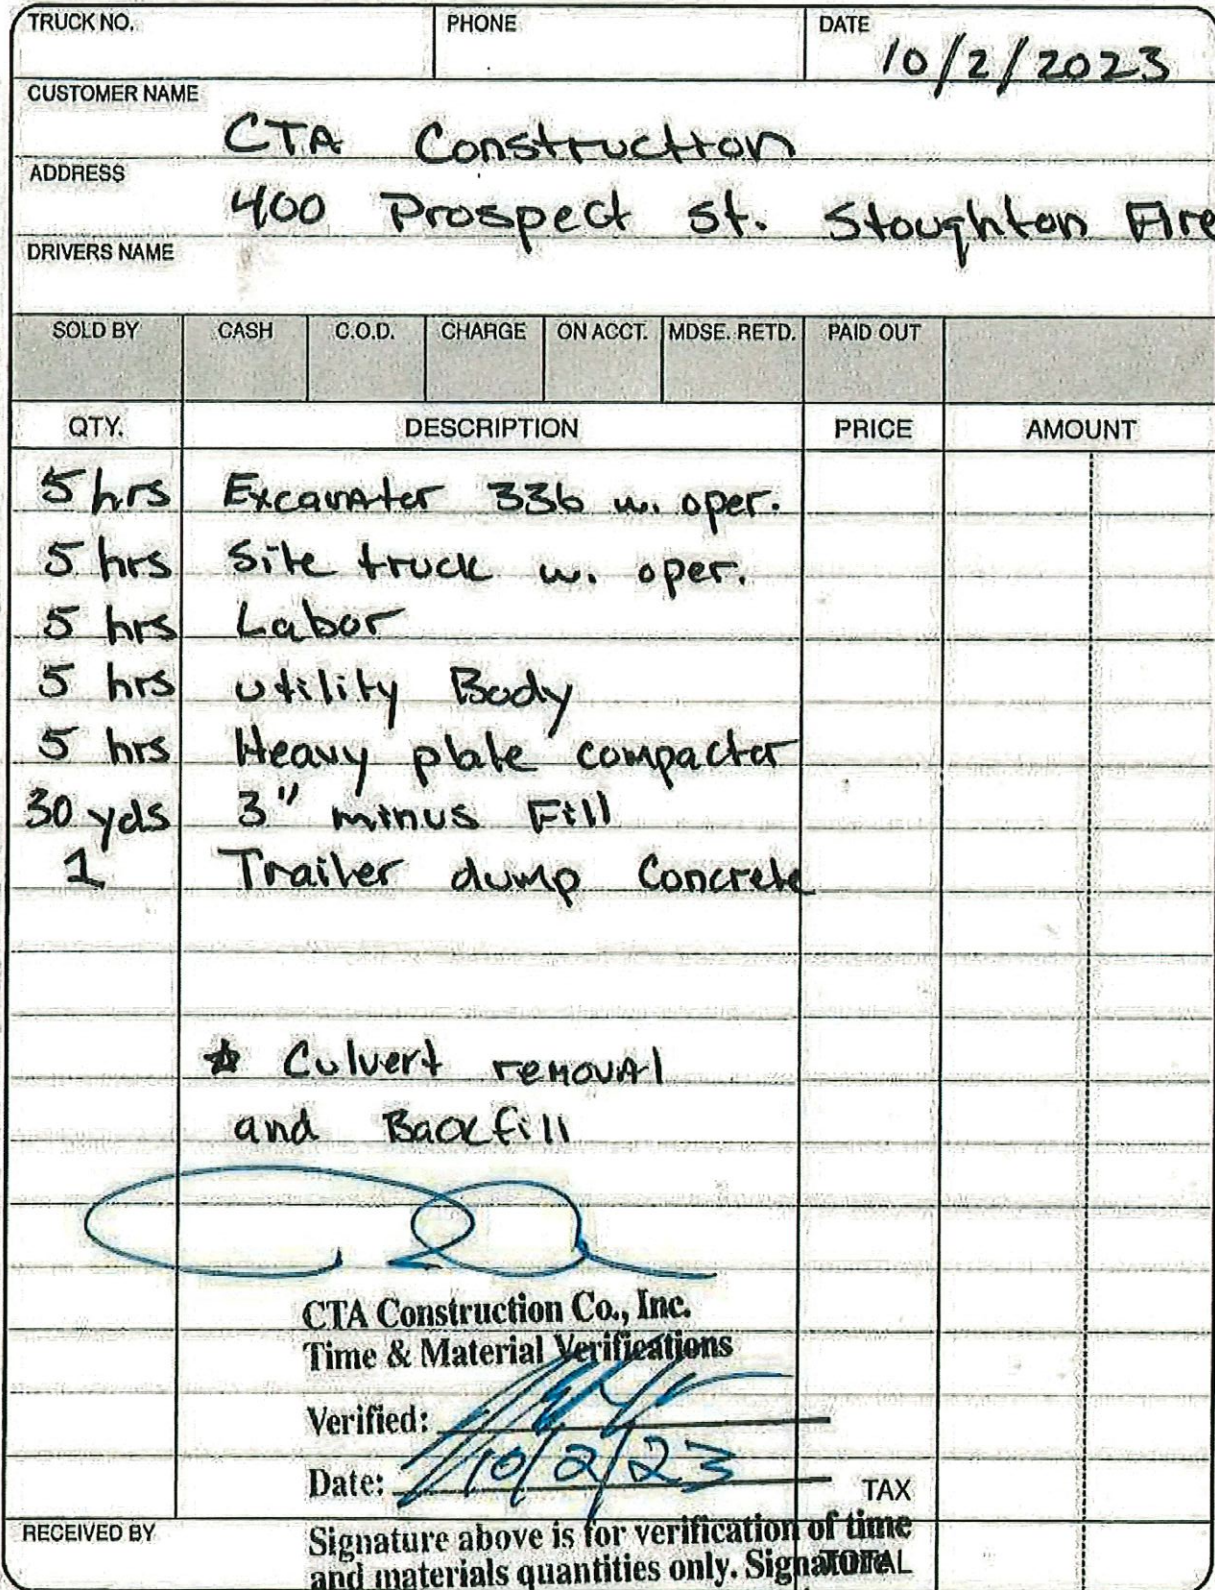 TRUCK NO. PHONE DATE
10/2/2023
CUSTOMER NAME
CTA Construction
ADDRESS
400 Prospect St. Stoughton Fire
DRIVERS NAME
SOLD BY CASH C.O.D. CHARGE ON ACCT. MDSE. RETD. PAID OUT
QTY. DESCRIPTION PRICE AMOUNT
5 hrs Excavator 336 w. oper.
5 hrs Site truck w. oper.
5 hrs Labor
5 hrs utility Body
5 hrs Heavy plate compactor
30 yds 3" minus Fill
1 Trailer dump Concrete
☆ Culvert removal
and Backfill
CTA Construction Co., Inc.
Time & Material Verifications
Verified:
Date: 10/2/23
TAX
RECEIVED BY
Signature above is for verification of time
and materials quantities only. Signature
TOTAL